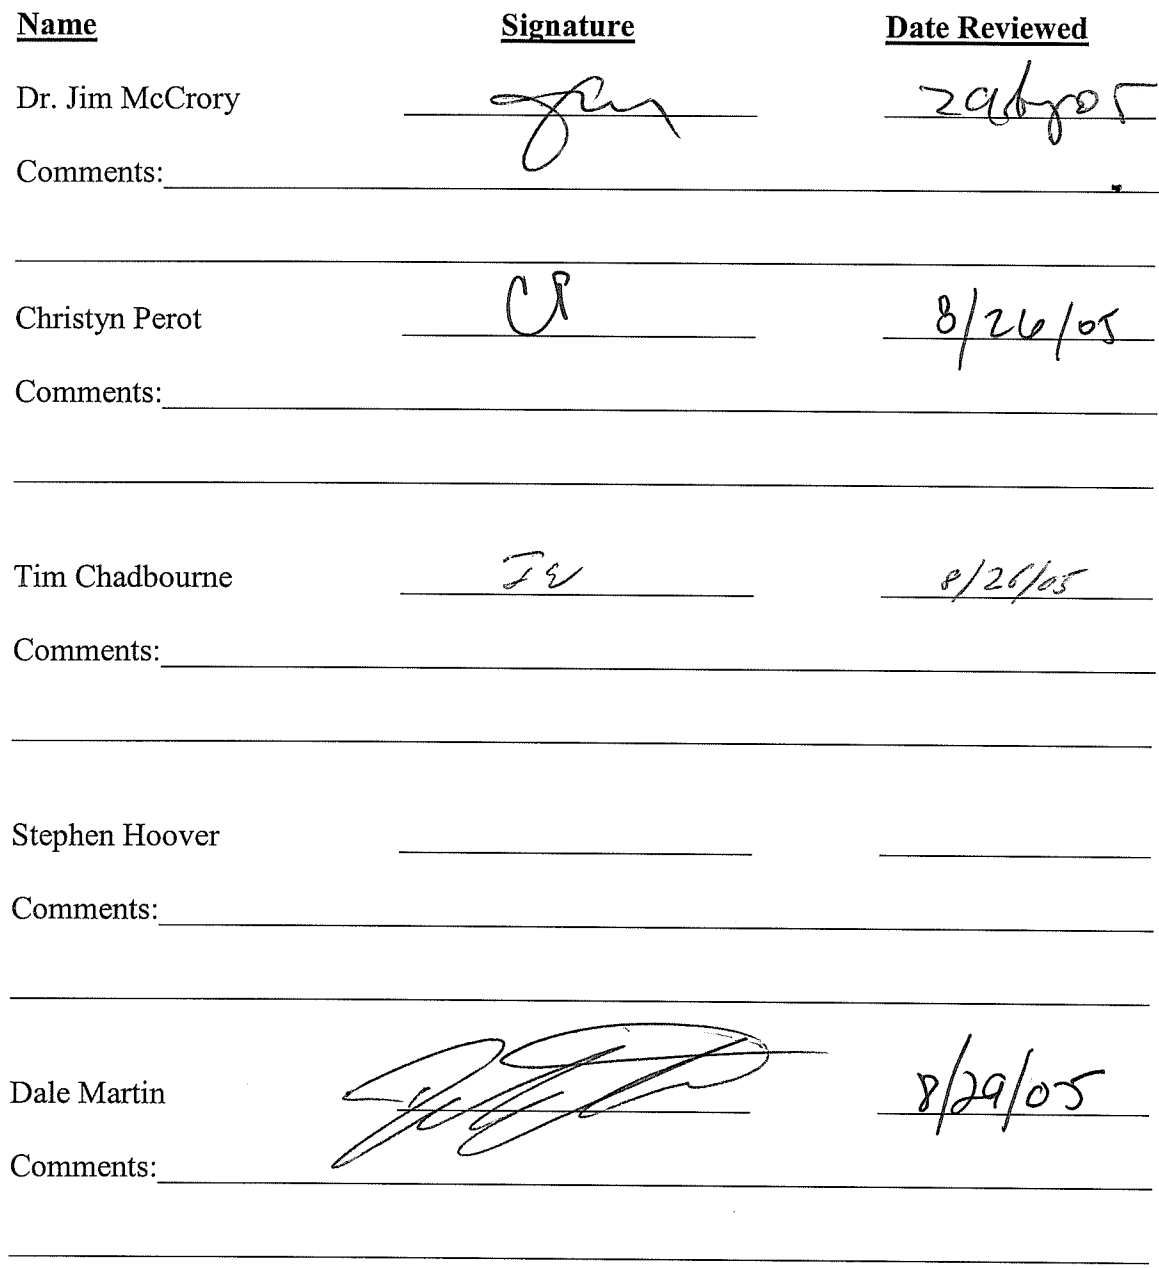 Name Signature Date Reviewed
Dr. Jim McCrory
Comments:
Christyn Perot CP 8/26/05
Comments:
Tim Chadbourne 8/26/05
Comments:
Stephen Hoover
Comments:
Dale Martin 8/29/05
Comments: